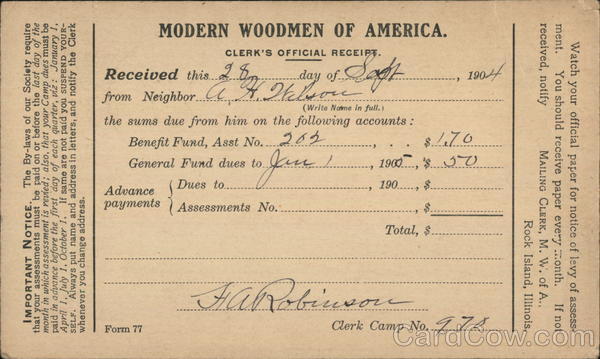 IMPORTANT NOTICE. The By-laws of our Society require
that your assessments must be paid on or before the last day of the
month in which assessment is levied; also, that your Camp dues must be
paid in advance before the first day of each quarter, viz: January 1.
April 1. July 1. October 1. If same are not paid you SUSPEND YOUR-
SELF. Always put name and address in letters, and notify the Clerk
whenever you change address.
MODERN WOODMEN OF AMERICA.
CLERK'S OFFICIAL RECEIPT.
Received this 28 day of Sept, 1904
from Neighbor A. H. Wilson
(Write Name in full.)
the sums due from him on the following accounts:
Benefit Fund, Asst No. 202, . . $1.70
General Fund dues to Jan 1 1905, $ 50
Advance payments
Dues to 190 , $
Assessments No. , $
Total, $
F A Robinson
Form 77
Clerk Camp No. 978
Watch your official paper for notice of levy of assess-
ment. You should receive paper every month. If not
received, notify MAILING CLERK, M. W. of A.,
Rock Island, Illinois.
CardCow.com